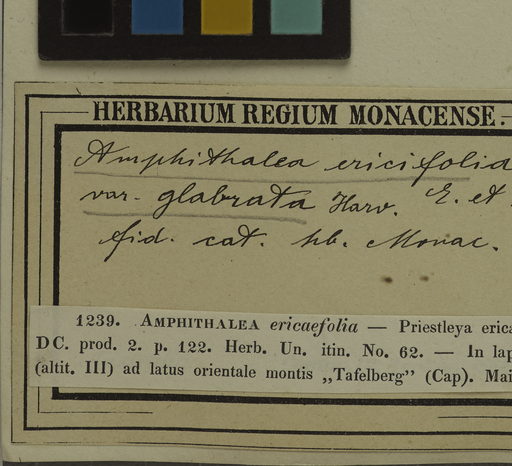 HERBARIUM REGIUM MONACENSE.
Amphithalea ericifolia
var. glabrata Harv. E. et
fid. cat. hb. Monac.
1239. AMPHITHALEA ericaefolia — Priestleya erica
DC. prod. 2. p. 122. Herb. Un. itin. No. 62. — In lap
(altit. III) ad latus orientale montis „Tafelberg” (Cap). Mai